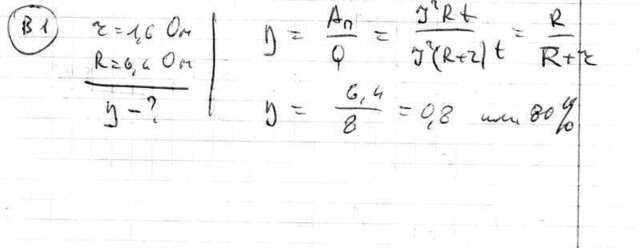 В1
r = 1,6 Ом
R = 6,4 Ом
η - ?
η = Aп / Q = J²Rt / J²(R+r)t = R / R+r
η = 6,4 / 8 = 0,8 или 80%